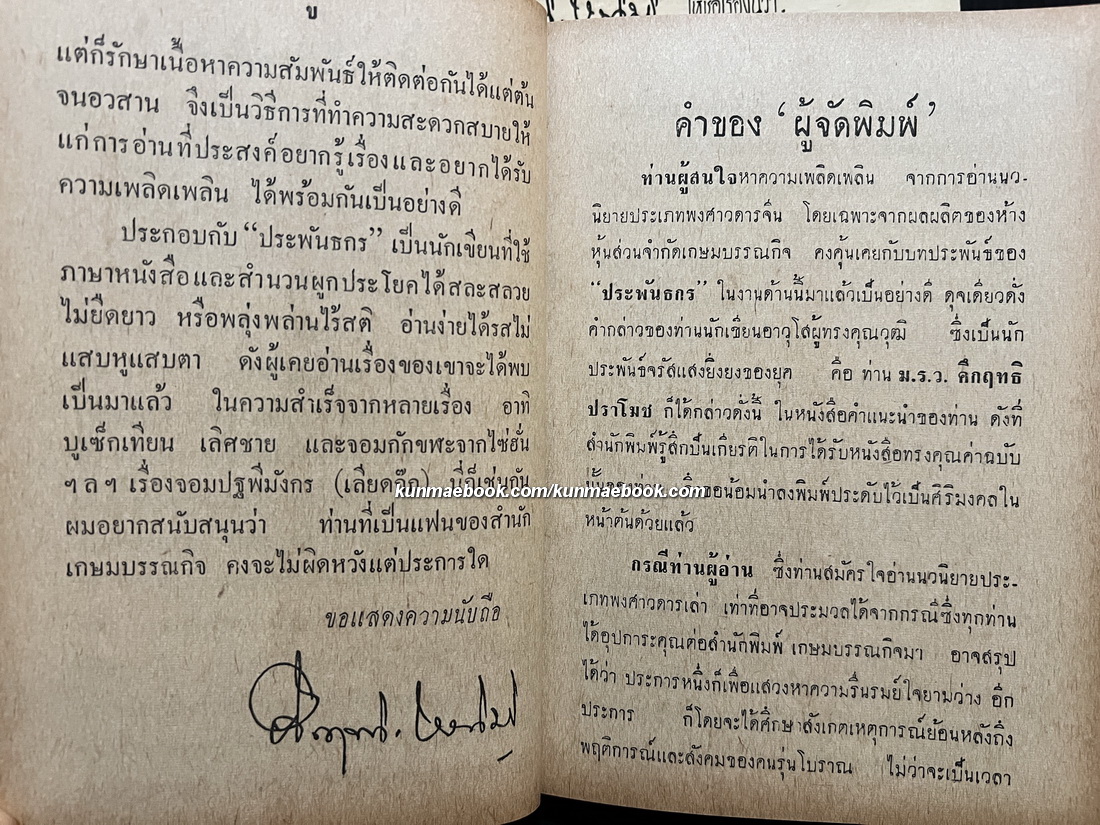 ข
แต่ก็รักษาเนื้อหาความสัมพันธ์ให้ติดต่อกันได้แต่ต้น
จนอวสาน จึงเป็นวิธีการที่ทำความสะดวกสบายให้
แก่การอ่านที่ประสงค์อยากรู้เรื่องและอยากได้รับ
ความเพลิดเพลิน ได้พร้อมกันเป็นอย่างดี
ประกอบกับ “ประพันธกร” เป็นนักเขียนที่ใช้
ภาษาหนังสือและสำนวนผูกประโยคได้สละสลวย
ไม่ยืดยาว หรือพลุ่งพล่านไร้สติ อ่านง่ายได้รสไม่
แสบหูแสบตา ดังผู้เคยอ่านเรื่องของเขาจะได้พบ
เป็นมาแล้ว ในความสำเร็จจากหลายเรื่อง อาทิ
บูเช็กเทียน เลิศชาย และจอมกักขฬะจากไซ่ฮั่น
ฯลฯ เรื่องจอมปฐพีมังกร (เลียดก๊ก) นี่ก็เช่นกัน
ผมอยากสนับสนุนว่า ท่านที่เป็นแฟนของสำนัก
เกษมบรรณกิจ คงจะไม่ผิดหวังแต่ประการใด
ขอแสดงความนับถือ
คำของ ‘ผู้จัดพิมพ์’
ท่านผู้สนใจหาความเพลิดเพลิน จากการอ่านนว-
นิยายประเภทพงศาวดารจีน โดยเฉพาะจากผลผลิตของห้าง
หุ้นส่วนจำกัดเกษมบรรณกิจ คงคุ้นเคยกับบทประพันธ์ของ
“ประพันธกร” ในงานด้านนี้มาแล้วเป็นอย่างดี ดุจเดียวดั่ง
คำกล่าวของท่านนักเขียนอาวุโสผู้ทรงคุณวุฒิ ซึ่งเป็นนัก
ประพันธ์จรัสแสงยิ่งยงของยุค คือ ท่าน ม.ร.ว. คึกฤทธิ
ปราโมช ก็ได้กล่าวดั่งนี้ ในหนังสือคำแนะนำของท่าน ดังที่
สำนักพิมพ์รู้สึกเป็นเกียรติในการได้รับหนังสือทรงคุณค่าฉบับ
นั้นของท่าน จึงขอน้อมนำลงพิมพ์ประดับไว้เป็นศิริมงคลใน
หน้าต้นด้วยแล้ว
กรณีท่านผู้อ่าน ซึ่งท่านสมัครใจอ่านนวนิยายประ-
เภทพงศาวดารเล่า เท่าที่อาจประมวลได้จากกรณีซึ่งทุกท่าน
ได้อุปการะคุณต่อสำนักพิมพ์ เกษมบรรณกิจมา อาจสรุป
ได้ว่า ประการหนึ่งก็เพื่อแสวงหาความรื่นรมย์ใจยามว่าง อีก
ประการ ก็โดยจะได้ศึกษาสังเกตเหตุการณ์ย้อนหลังถึง
พฤติการณ์และสังคมของคนรุ่นโบราณ ไม่ว่าจะเป็นเวลา
kunmaebook.com/kunmaebook.com